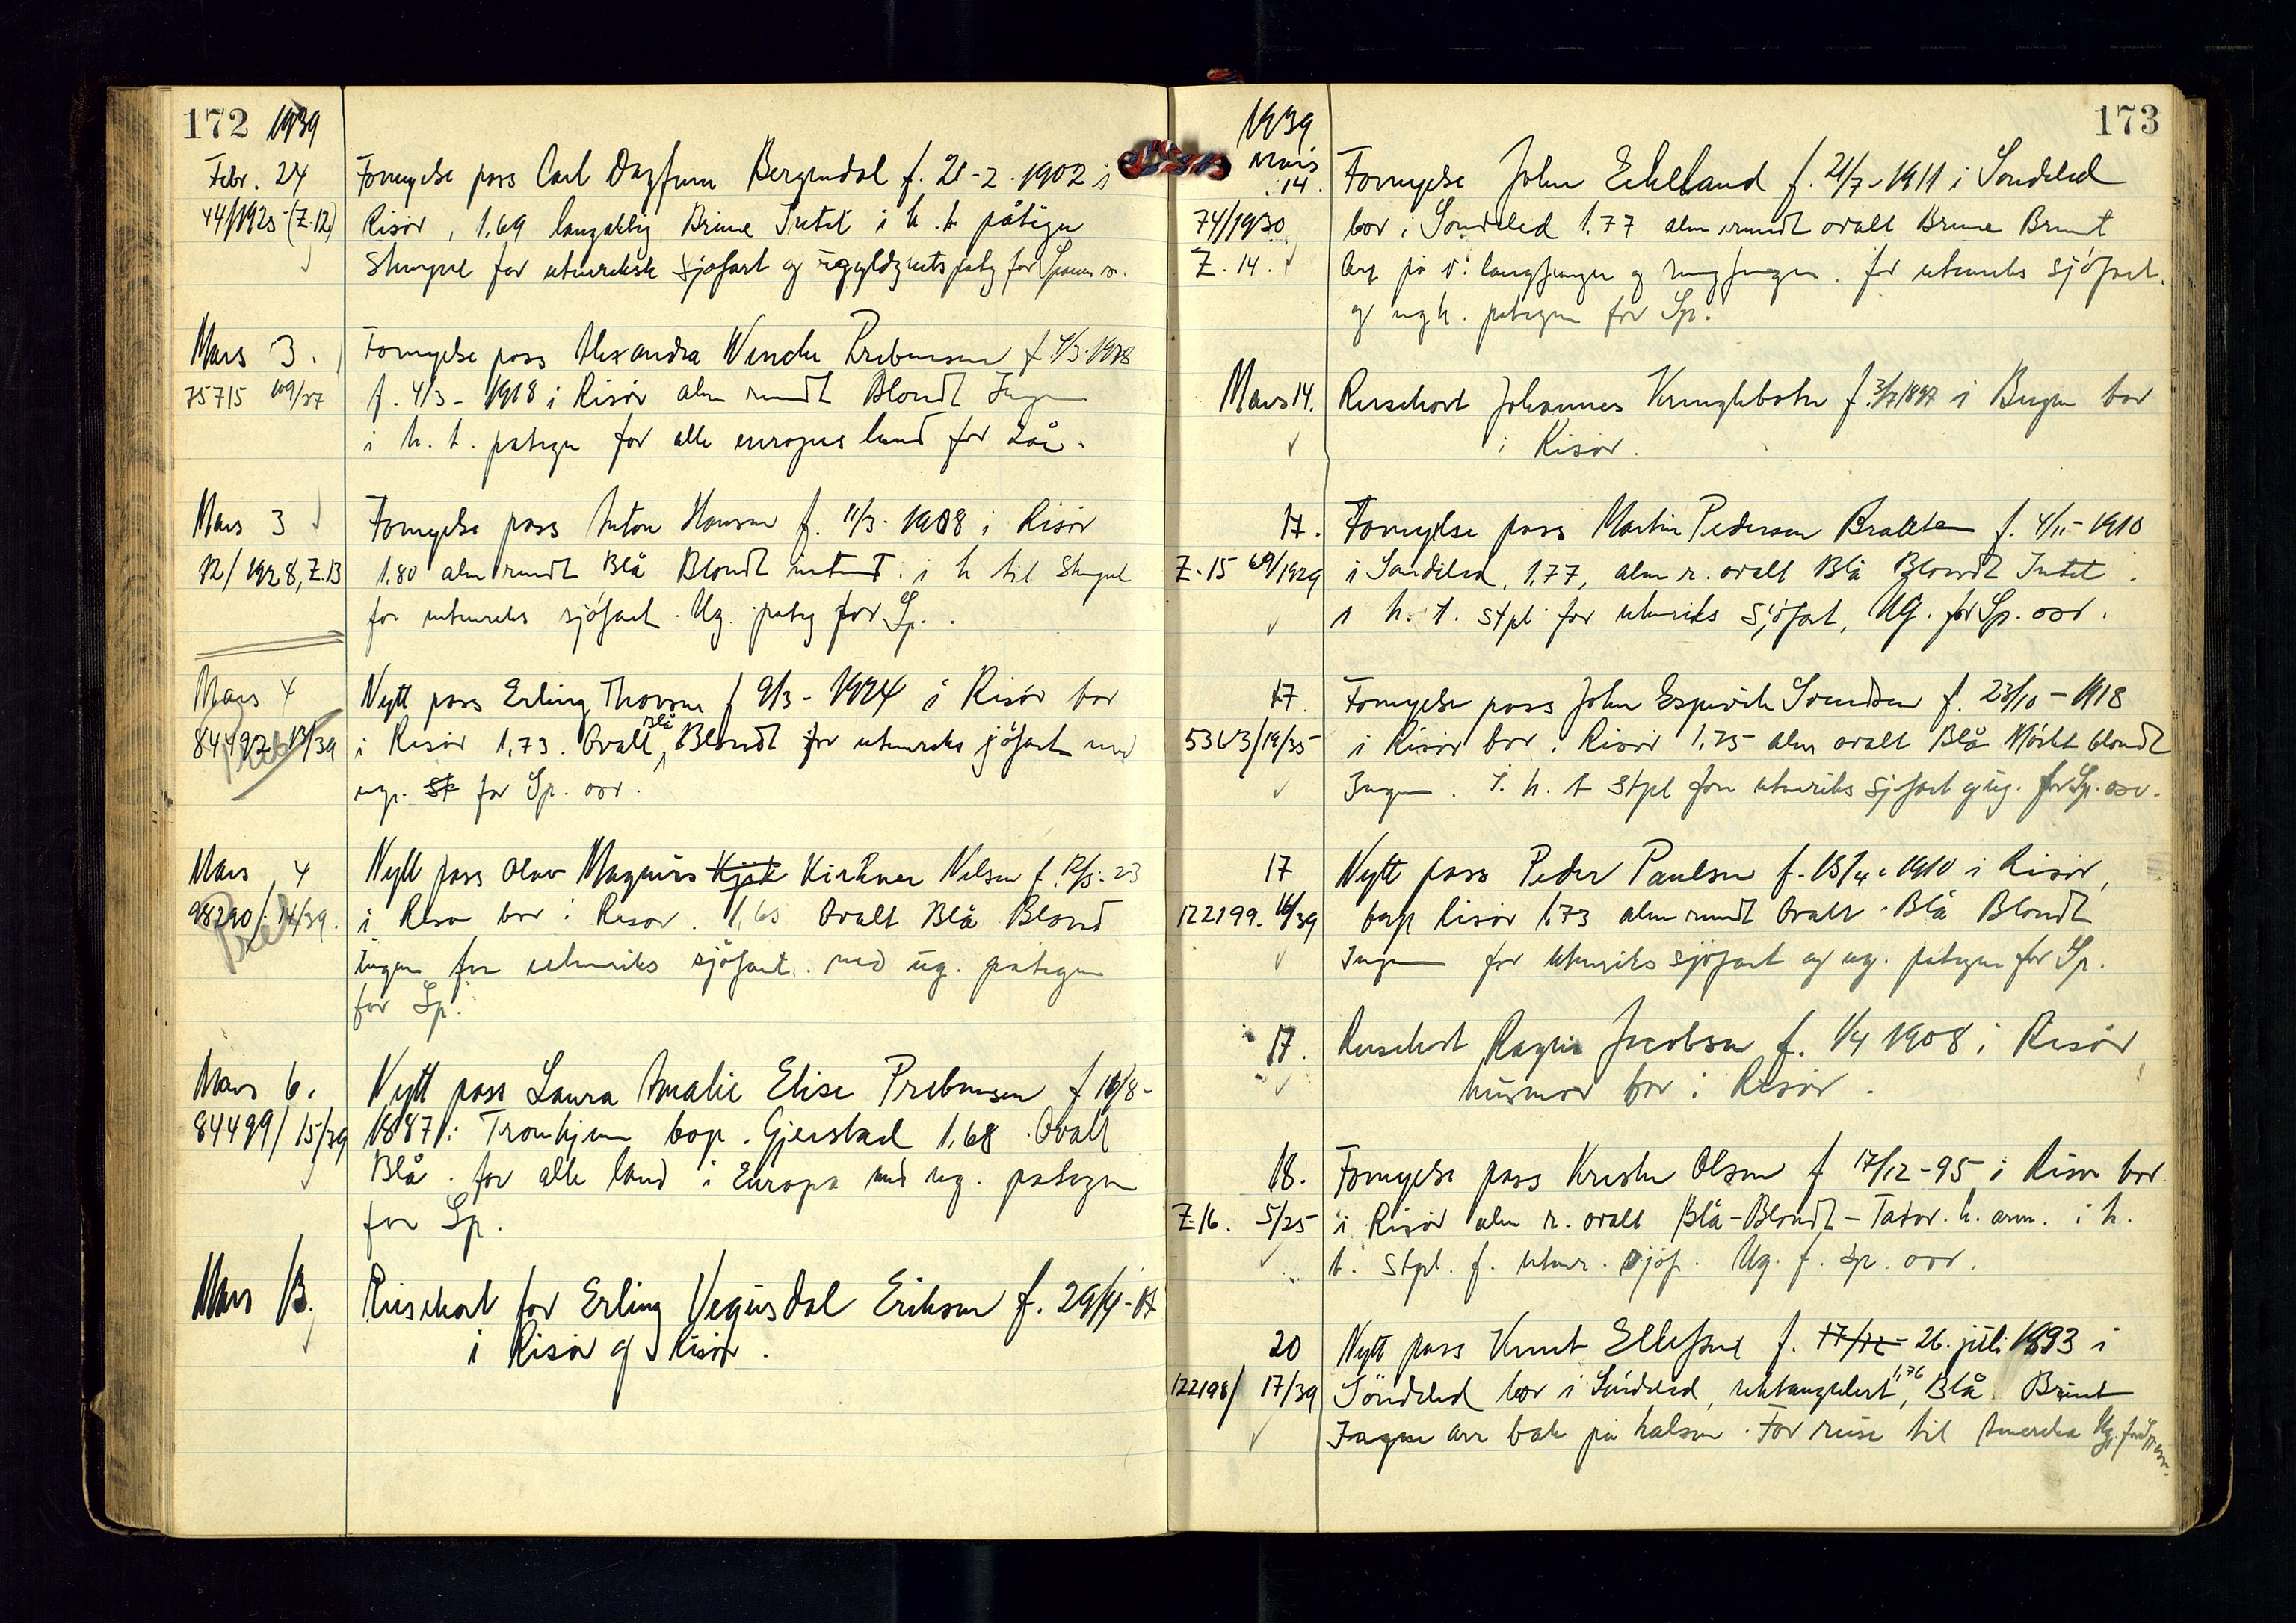 172 1939
Febr. 24 Fornyelse pass Carl Dagfinn Bergendal f. 21-2-1902 i
44/1925 (Z.12) Risör, 1,69 langaktig Brune Intet i h. t. påtegn
Stempel for utenriksk sjöfart og ugyldighets påteg for Spania o.
Mars 3. Fornyelse pass Alexandra Wencke Prebensen f. 4/3-1918
75715 109/37 f. 4/3-1918 i Risör alm rundt Blondt Ingen
i h. t. pategn for alle europas land for 2 år.
Mars 3 Fornyelse pass Anton Hansen f. 11/3-1908 i Risör
92/1928, Z.13 1.80 alm rundt Blå Blondt intet. i h til Stempel
for utenriks sjöfart. Ug. pateg for Sp.
Mars 4 Nytt pass Erling Thorsen f 9/3-1924 i Risör bor
13/39 i Risör 1,73. Ovalt Blå, Blondt for utenriks sjöfart med
ugr. St for Sp. osv.
Mars 4 Nytt pass Olav Magnus Kirkner Nilsen f. 12/3-23
98290/14/39. i Risör bor i Risör. 1,65 Ovalt Blå Blond
Ingen for utenriks sjöfart. med ug. pategn
for Sp.
Mars 6. Nytt pass Laura Amalie Elise Prebensen f 16/8-
84499/15/39 1887 i Tronhjem bop. Gjerstad 1,68 Ovalt
Blå. for alle land i Europa med ug. pategn
for Sp.
Mars 13. Reisekort for Erling Vegusdal Eriksen f. 29/4-17
i Risör og Risör.
173
1939
Mars
14. Fornyelse John Eikeland f. 21/7-1911 i Sondeled
74/1930 bor i Sondeled 1.77 alm rundt ovalt Brune Brunt
Z. 14. Arr på v. langfinger og ringfinger. for utenriks sjöfart.
og ugh. pategn for Sp.
Mars 14. Reisekort Johannes Kringlebotn f. 3/7 1897 i Bergen bor
i Risör.
17. Fornyelse pass Martin Pedersen Brakten f. 4/11-1910
Z. 15 69/1929 i Sondeled, 1,77, alm r. ovalt Blå Blondt Intet.
i h. t. stpl for utenriks Sjöfart, Ug. for Sp. osv.
17. Fornyelse pass John Espevik Svendsen f. 23/10-1918
5363/19/35 i Risör bor i Risör 1,75 alm ovalt Blå Mörkt blondt
Ingen. i. h. t stpl for utenriks sjöfart og ug. for Sp. osv.
17 Nytt pass Peder Paulsen f. 15/4-1910 i Risör,
122199. 16/39 bop Risör 1,73 alm rundt Ovalt. Blå Blondt
Ingen for utenriks sjöfart og ug. pategn for Sp.
17. Reisekort Ragna Jacobsen f. 1/4 1908 i Risör
husmor bor i Risör.
18. Fornyelse pass Kristen Olsen f 17/12-95 i Risör bor
Z. 16. 5/25 i Risör alm r. ovalt Blå-Blondt-Tator. h. arm. i h.
t. stpl. f. utenr. sjöf. Ug. f. sp. osv.
20 Nytt pass Knut Ellefsen f. 17/12- 26. juli 1893 i
122198/ 17/39 Söndeled bor i Söndeled, rektangulært, 1,76 Blå Brunt
Ingen arr bak på halsen. For reise til Amerika Ug. for Sp. osv.